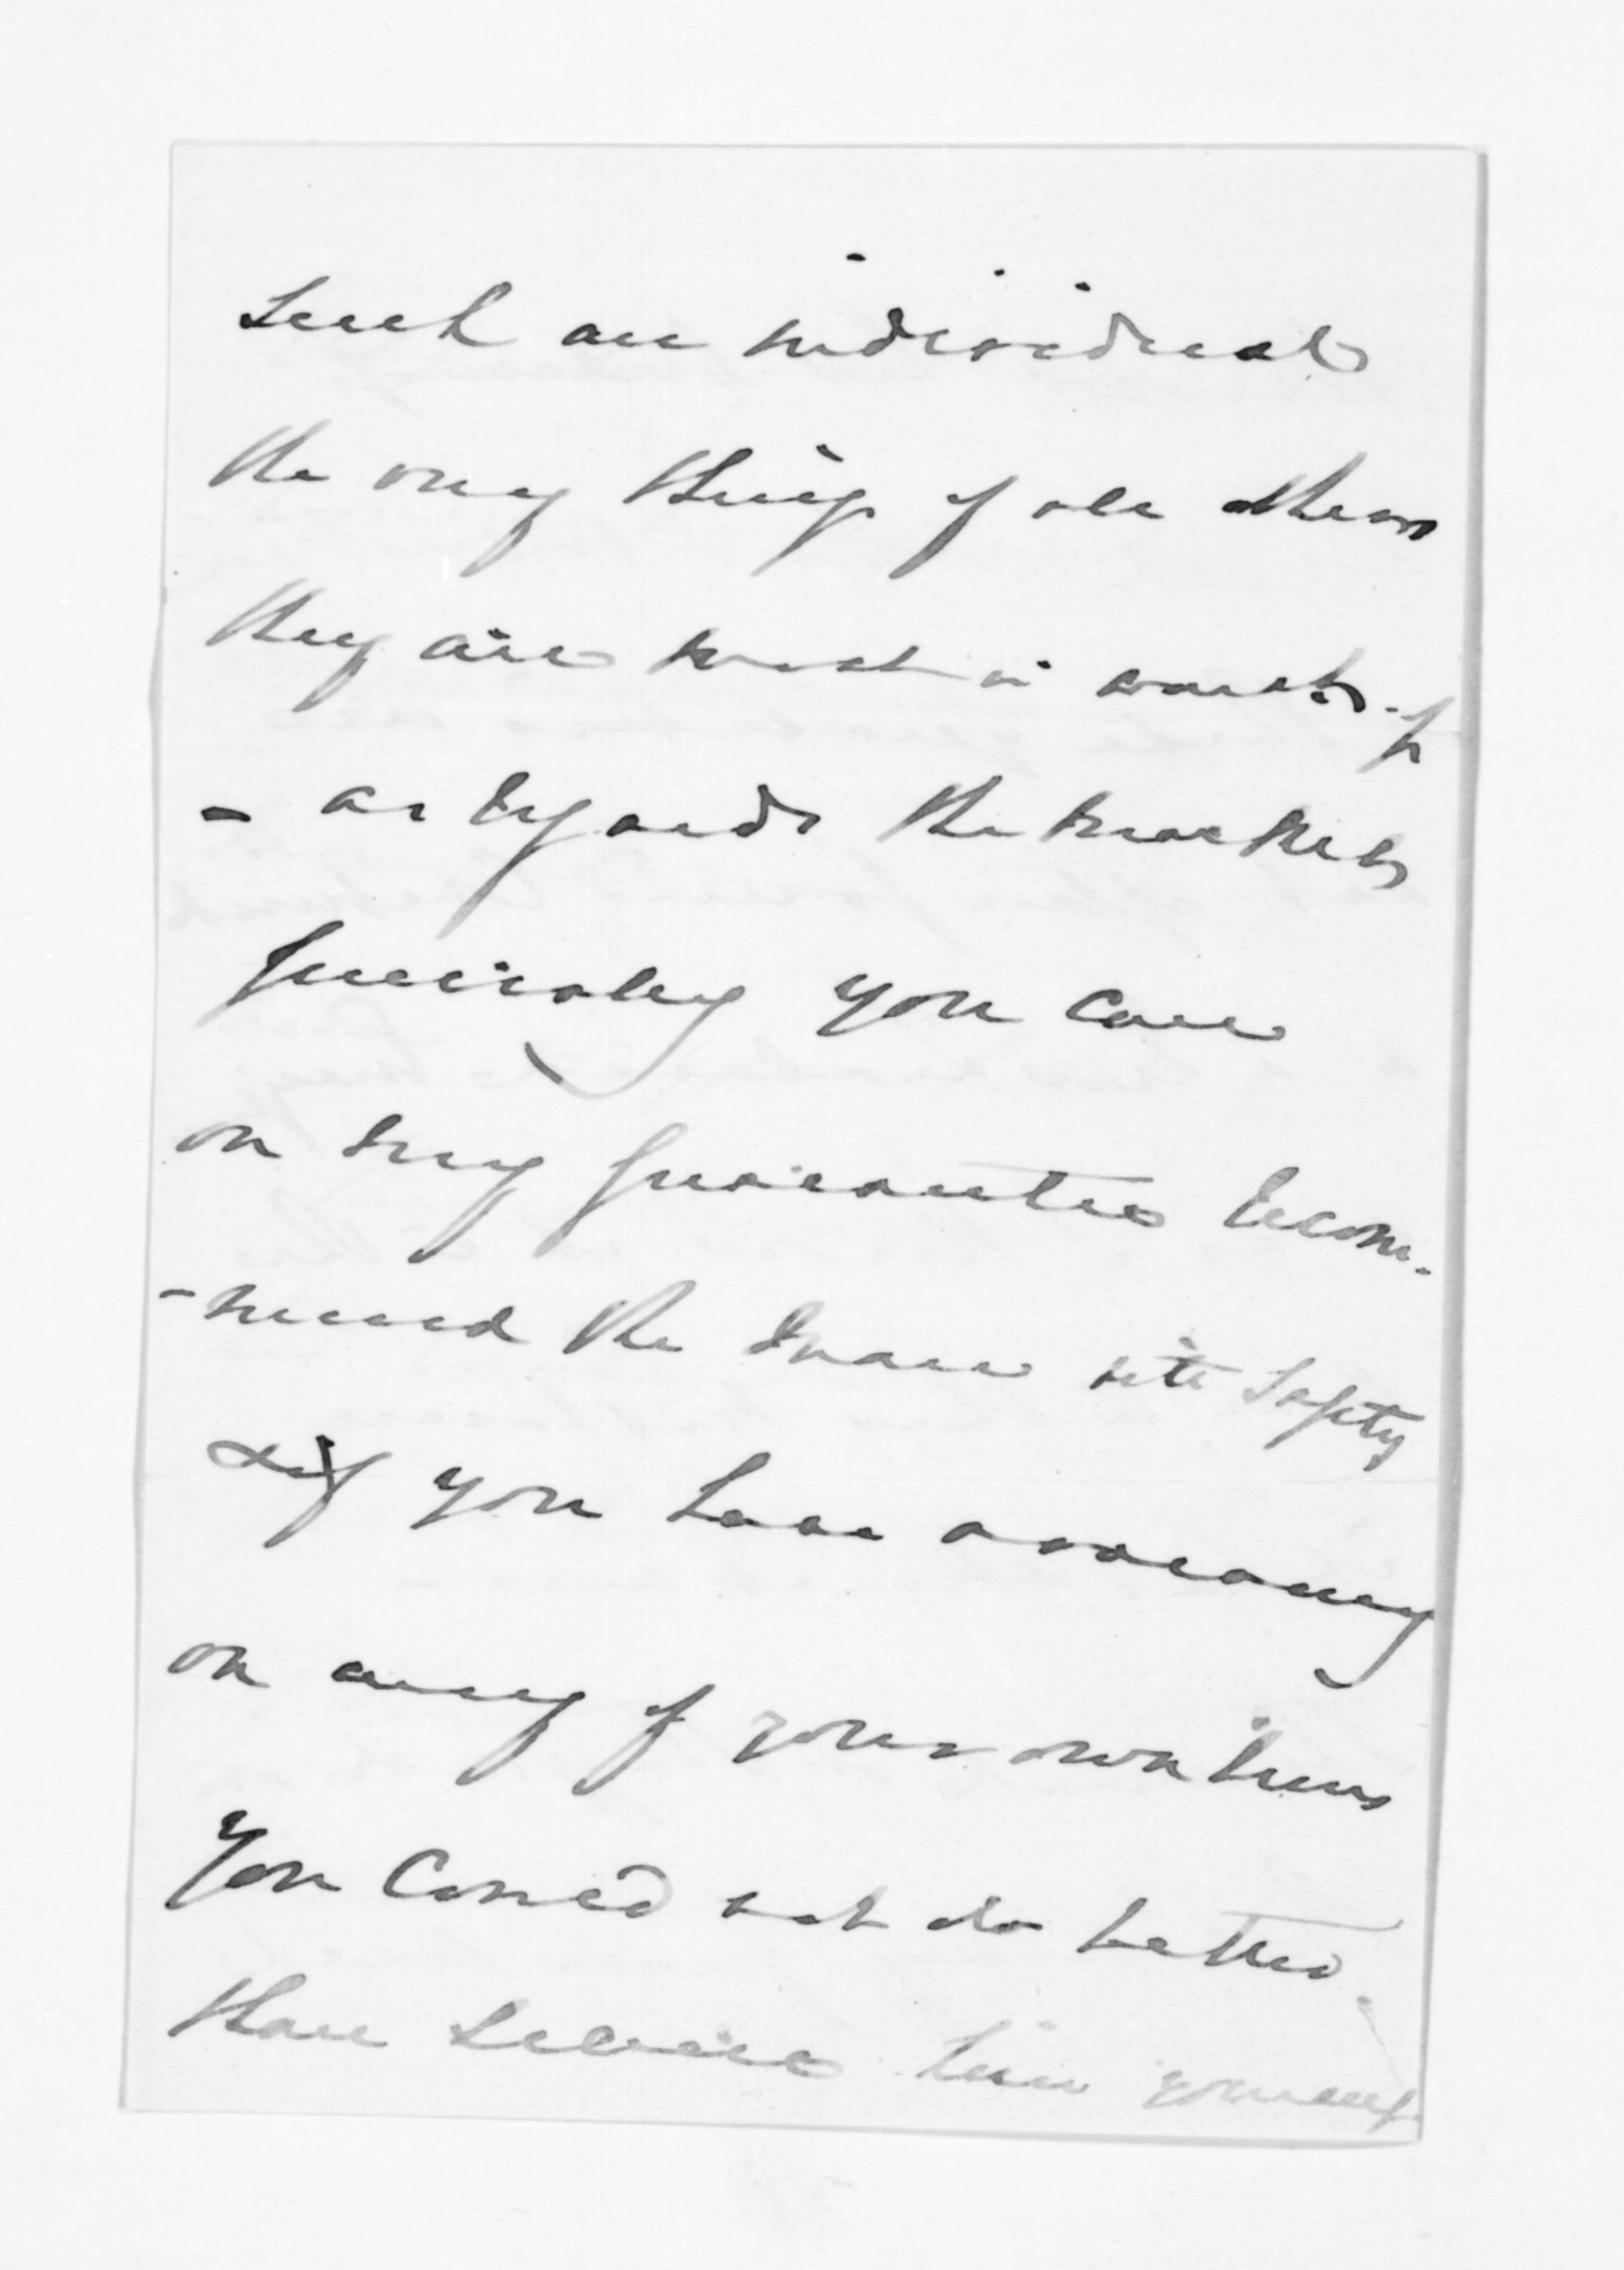 Such an individual
the very thing of all others
they are most in want of
- as regards the market
generally you can
on my guarantee recom-
-mend the man with safety
& if you have a vacancy
on any of your own runs
You could not do better
than secure him yourself